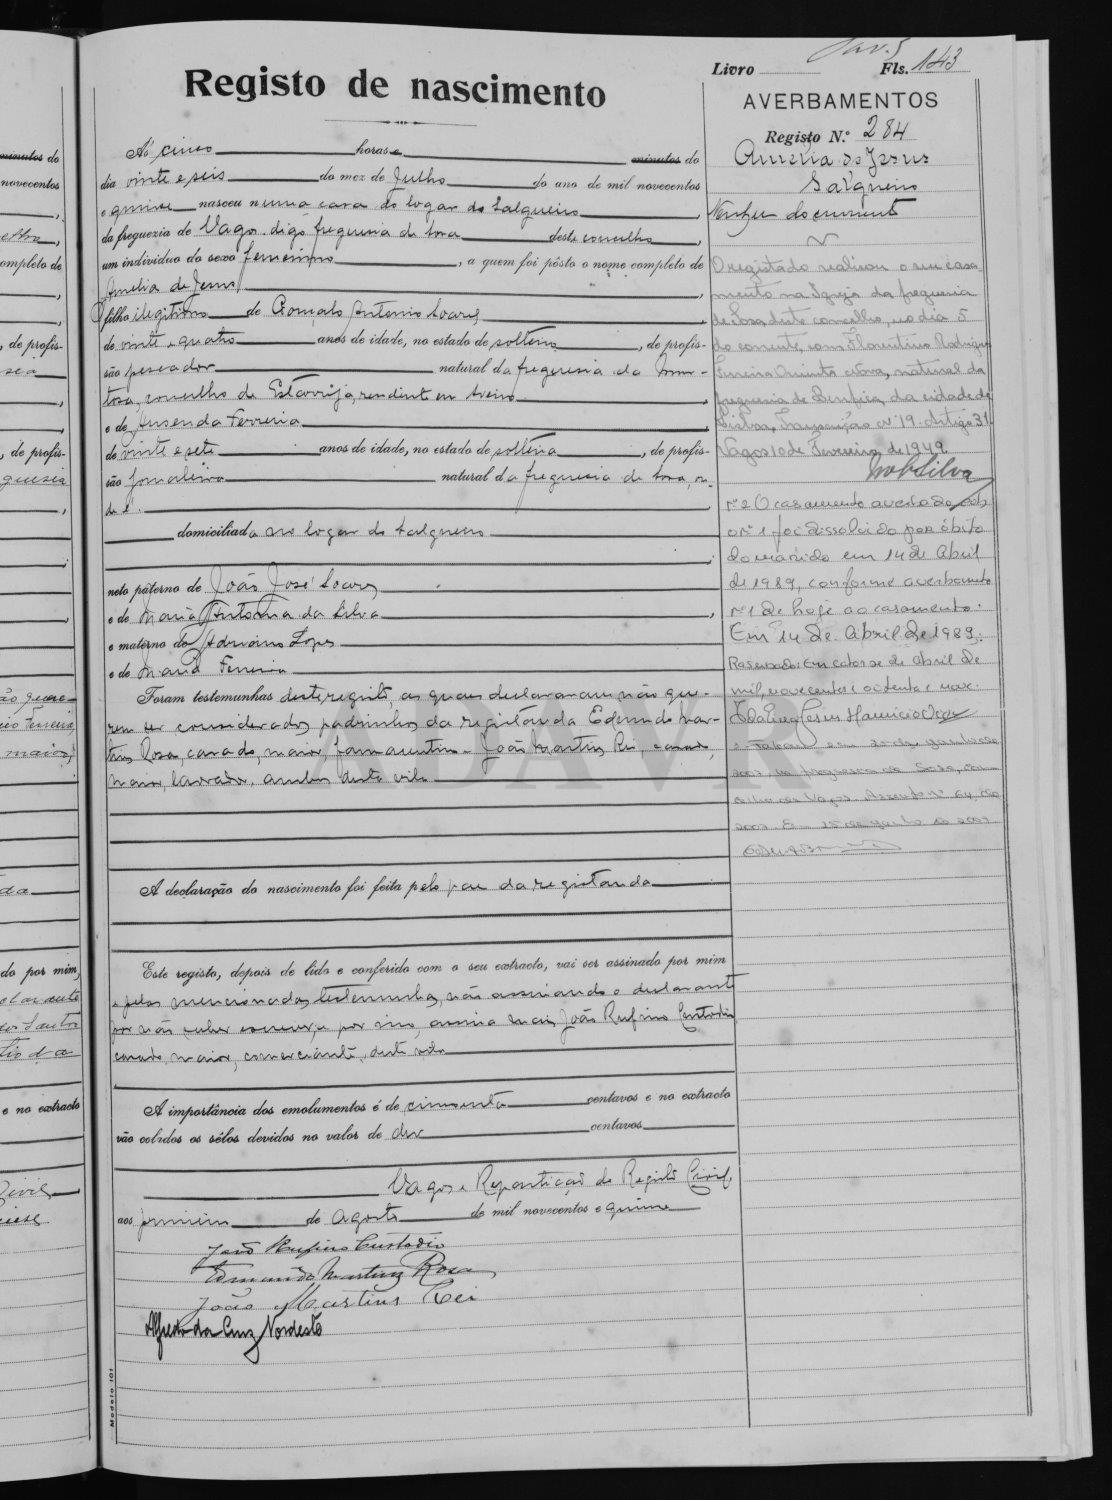 Livro Fls. 143
Registo de nascimento
AVERBAMENTOS
Registo N.º 284
Amelia de Jesus
Salgueiro
Nenhum documento
Ás cinco horas e minutos do
dia vinte e seis do mez de Julho do ano de mil novecentos
e quinze nasceu n uma casa do logar do Salgueiro,
da freguezia de Vagos digo freguesia de Sosa deste concelho,
um individuo do sexo femenino, a quem foi pôsto o nome completo de
Amelia de Jesus,
filho ilegitimo de Gonçalo Antonio Soares,
de vinte e quatro anos de idade, no estado de solteiro, de profis-
são pescador natural da freguesia da Mur-
tosa, concelho de Estarreja, residente em Aveiro,
e de Ausenda Ferreira
de vinte e sete anos de idade, no estado de solteira, de profis-
são jornaleira natural da freguesia de Sosa,
domiciliada no logar do Salgueiro
neto paterno de João José Soares
e de Maria Antonia da Silva,
e materno de Adriano Lopes
e de Maria Ferreira
Foram testemunhas deste registo, as quaes declararam não que-
rem ser considerados padrinhos da registanda Edmundo Mar-
tins Rosa, casado, maior, farmaceutico e João Martins Rei, casado,
maior, lavrador, ambos desta vila
A declaração do nascimento foi feita pelo pae da registanda
Este registo, depois de lido e conferido com o seu extracto, vai ser assinado por mim
e pelas mencionadas testemunhas, não assinando o declarante
por não saber escrever e por isso, assina mais João Rufino Custodio
casado, maior, comerciante, desta vila
A importância dos emolumentos é de cincoenta centavos e no extracto
vão colados os sêlos devidos no valor de dez centavos
Vagos e Repartição do Registo Civil,
aos primeiro de Agosto de mil novecentos e quinze
João Rufino Custodio
Edmundo Martins Rosa
João Martins Rei
Alfredo da Cruz Nordeste
Modelo 101
O registado realisou o seu casa-
mento na Igreja da freguesia
de Sosa, deste concelho, no dia 5
do corrente, com Florentino Rodrigues
Ferreira Quinta Nova, natural da
freguesia de Benfica da cidade de
Lisboa, Transcrição nº 19. Artigo 31
Vagos 10 de Fevereiro de 1949
Silva
nº 2 O casamento averbado sob
o nº 1 foi dissolvido por óbito
do marido em 14 de Abril
de 1989, conforme averbamento
nº 1 de hoje ao casamento.
Em 14 de Abril de 1989.
Ressalvado: Em catorze de Abril de
mil, novecentos e oitenta e nove.
freguesia de Sosa, con-
celho de Vagos. Assento nº 64, de
ADAVR
do
novecentos
completo de
, de profis-
, de profis-
do por mim,
e no extracto